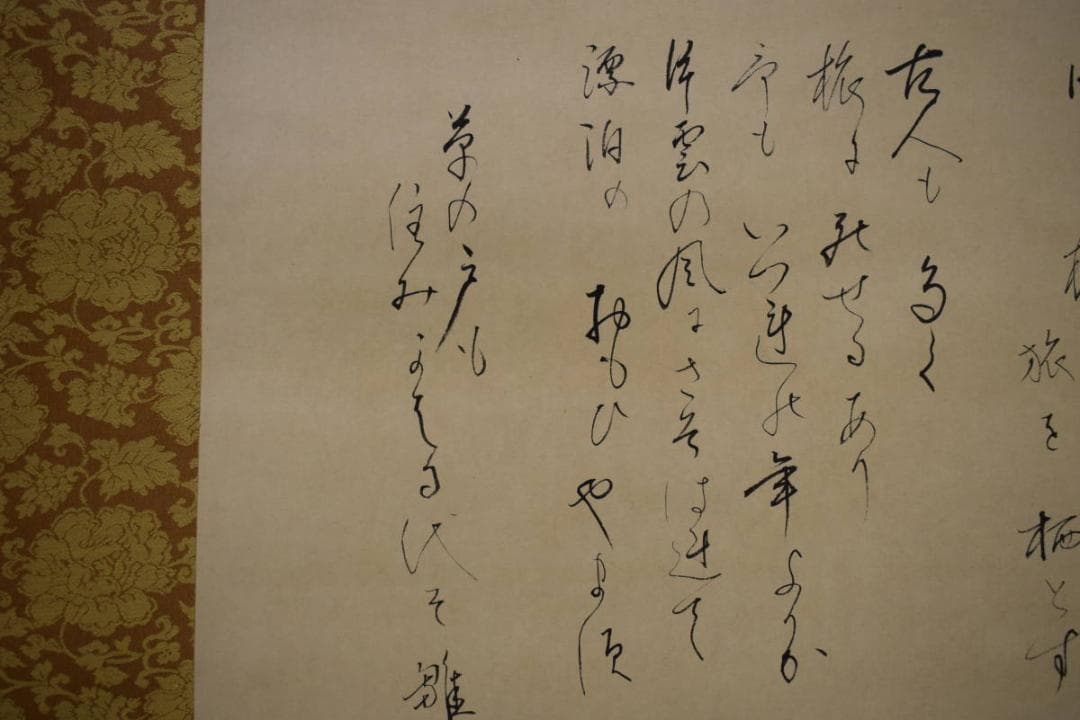 旅を栖とす
古人も多く
旅に死せるあり
予もいつれの年よりか
片雲の風にさそはれて
漂泊のおもひやます
草の戸も
住みかはる代そ雛